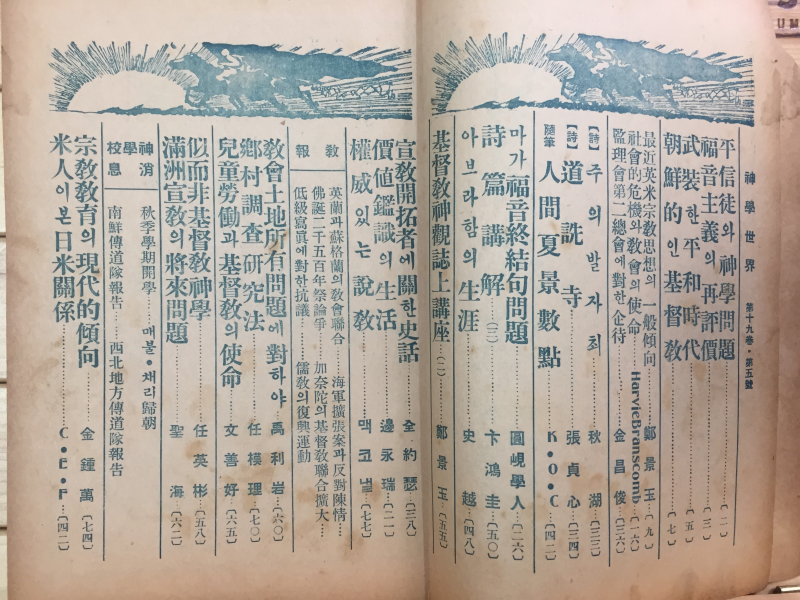 神學世界 第十九卷·第五號
平信徒와 神學問題……〔一〕
福音主義의 再評價……〔三〕
武裝한 平和時代……〔五〕
朝鮮的인 基督敎……〔七〕
最近英米宗敎思想의 一般傾向……鄭景玉…〔九〕
社會的危機와 敎會의 使命……HarvieBranscomb…〔一六〕
監理會第二總會에 對한 企待……金昌俊…〔三六〕
【詩】 주의 발자최……秋湖…〔三三〕
【詩】 道詵寺……張貞心…〔三四〕
隨筆 人間夏景數點……K·O·C…〔四二〕
마가 福音終結句問題……圓峴學人…〔二六〕
詩篇講解(二)……卞鴻圭…〔五〇〕
아브라함의 生涯……史越…〔四八〕
基督敎神觀誌上講座(二)……鄭景玉…〔五五〕
宣敎開拓者에 關한 史話……全約瑟…〔三八〕
價値鑑識의 生活……邊永瑞…〔二一〕
權威있는 說敎……맥코낼…〔七七〕
敎報
英蘭과 蘇格蘭의 敎會聯合……海軍擴張案과 反對陳情……
佛誕二千五百年祭論爭……加奈陀의 基督敎聯合擴大……
低級寫眞에 對한 抗議……儒敎의 復興運動
敎會土地所有問題에 對하야……禹利岩…〔六〇〕
鄕村調查硏究法……任模理…〔七〇〕
兒童勞働과 基督敎의 使命……文善好…〔六五〕
似而非基督敎神學……任英彬…〔五八〕
滿洲宣敎의 將來問題……聖海…〔六二〕
神學校消息
秋季學期開學……매불·채리歸朝
南鮮傳道隊報告……西北地方傳道隊報告
宗敎敎育의 現代的傾向……金鍾萬…〔七四〕
米人이 본 日米關係……C·E·F…〔四二〕
UM